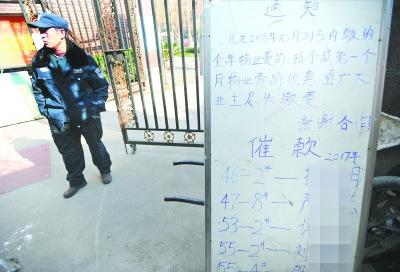 通知
凡在2018年元月31号内缴纳
全年物业费的,给予减免一个
月物业费的优惠,望广大
业主尽快缴费。
谢谢合作!
催款 2017年
46—2#—
47—8#—
53—2#—
55—2#—刘
55—4#—贺